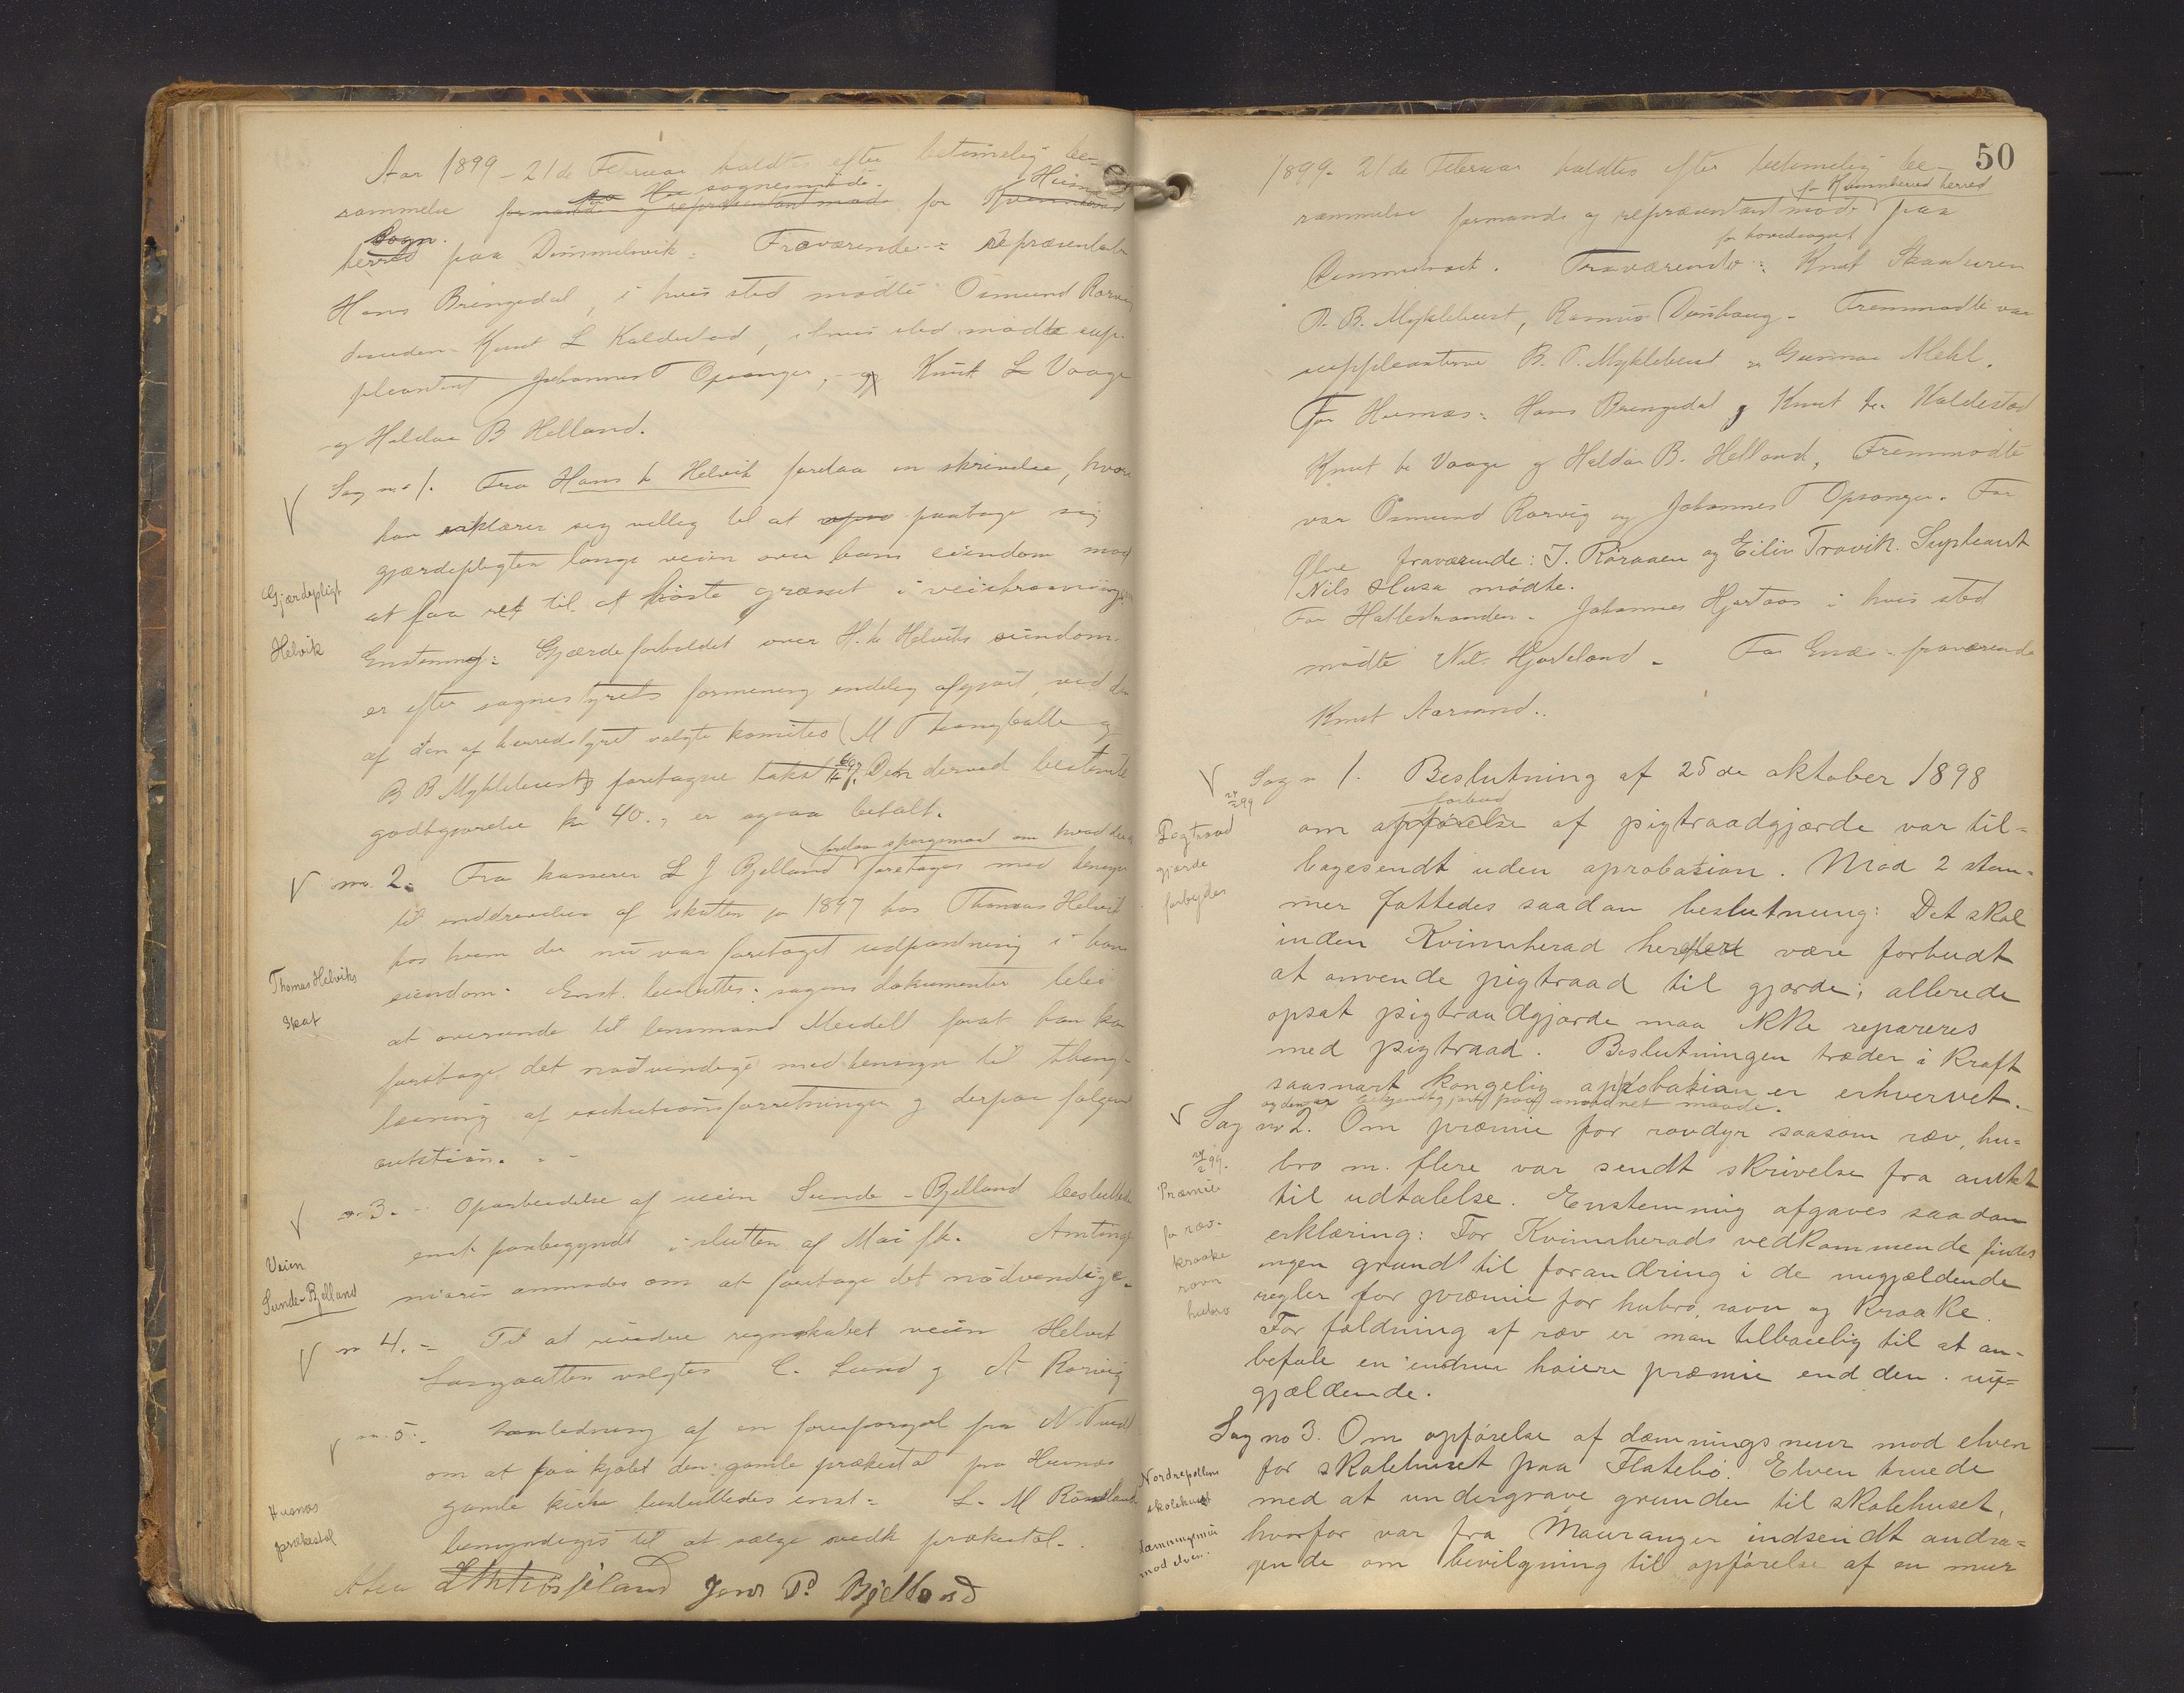 Aar 1899 - 21de Februar holdtes efter betimelig be-
rammelse formands og repræsentantmøde sognemøde for Kvinnherred Husnæs
herred Sogn paa Dimmelsvik. Fraværende: Repræsentant
Hans Bringedal, i hvis sted mødte Osmund Rørvig
desuden Knut L Kaldestad, i hvis sted mødte sup-
pleanten Johannes T Opsanger, og Knut L Vaage
og Haldor B Helland.
Sag no 1. Fra Hans L Helvik forelaa en skrivelse, hvori
han erklærer sig villig til at paatage sig
gjærdepligten langs veien over hans eiendom mod
at faa ret til at høste græsset i veiskraaningen
Gjærdepligt
Helvik
Enstemmig: Gjærdeforholdet over H. L. Helviks eiendom
er efter sognestyrets formening endelig afgjort, ved den
af den af herredstyret valgte komite (M T Hongballe og
B B Myklebust) foretagne takst. Den derved bestemte
godtgjørelse kr 40., er ogsaa betalt.
no. 2. Fra kasserer L J Bjelland forelaa spørgsmaal om hvad der foretages med hensyn
til inddrivelse af skatten for 1897 hos Thomas Helvik
hos hvem der nu var foretaget udpantning i hans
eiendom. Enst. besluttes: sagens dokumenter blir
Thomas Helviks
Skat
at oversende til lensmand Meidell forat han kan
foretage det nødvendige med hensyn til thing-
læsning af exekutionsforretningen og derpaa følgende
auktion.
no 3. Oparbeidelse af veien Sunde - Bjelland besluttes
enst. paabegyndt i slutten af Mai fk. Amtinge-
niøren anmodes om at foretage det nødvendige.
Veien
Sunde-Bjelland
no 4. Til at revidere regnskabet veien Helvik
valgtes C. Lund og A Rørvig
no. 5. I anledning af en forespørgsel fra N Tveit
om at faa kjøbt den gamle prækestol fra Husnæs
gamle kirke besluttedes enst: L. M Røssland
bemyndiges til at sælge vedk prækestol.
Husnæs
prækestol
Jens P. Bjelland
50
1899. 21de Februar holdtes efter betimelig be-
rammelse formands og repræsentantmøde for Kvinnherred herred paa
Dimmelsvik. Fraværende for hovedsognet: Knut Skaaluren
P. B. Myklebust, Rasmus Dønhaug. Fremmødte var
suppleanterne B. P. Myklebust og Gunnar Mehl.
For Husnæs: Hans Bringedal og Knut L. Kaldestad
Knut L Vaage og Haldor B. Helland. Fremmødte
var Osmund Rørvig og Johannes T Opsanger. For
Ølve fraværende: I. Røraaen og Eiliv Trovik. Supleant
Nils Husa mødte.
For Hatlestranden. Johannes Hjortaas i hvis sted
mødte Nils Hjorteland. For Enæs fraværende
Knut Aarsand.
Sag no 1. Beslutning af 25de oktober 1898
om forbud opførelse af pigtraadgjærde var til-
bagesendt uden aprobasion. Mod 2 stem-
mer fattedes saadan beslutning: Det skal
inden Kvinnherad herred være forbudt
at anvende pigtraad til gjærde; allerede
opsat pigtraadgjærde maa ikke repareres
med pigtraad. Beslutningen træder i kraft
saasnart kongelig aprobation er erhvervet
og den er bekjendtgjort paa anordnet maade.
24/2 99
Pigtraad
gjerde
forbydes
Sag no 2. Om præmie for rovdyr saasom ræv, hu-
bro m. flere var sendt skrivelse fra amtet
til udtalelse. Enstemmig afgaves saadan
erklæring: For Kvinnherads vedkommende findes
ingen grund til forandring i de nugjældende
regler for præmie for hubro, ravn og kraake.
For fældning af ræv er man tilbøielig til at an-
befale en endnu høiere præmie end den nu-
gjældende.
24/2 99.
Præmie
for ræv.
kraake
ravn
hubro
Sag no 3. Om opførelse af dæmningsmur mod elven
for skolehuset paa Flatebø. Elven truede
med at undergrave grunden til skolehuset,
hvorfor var fra Mauranger indsendt andra-
gende om bevilgning til opførelse af en mur
Nordrepollens
skolehus
Dæmningsmur
mod elven.